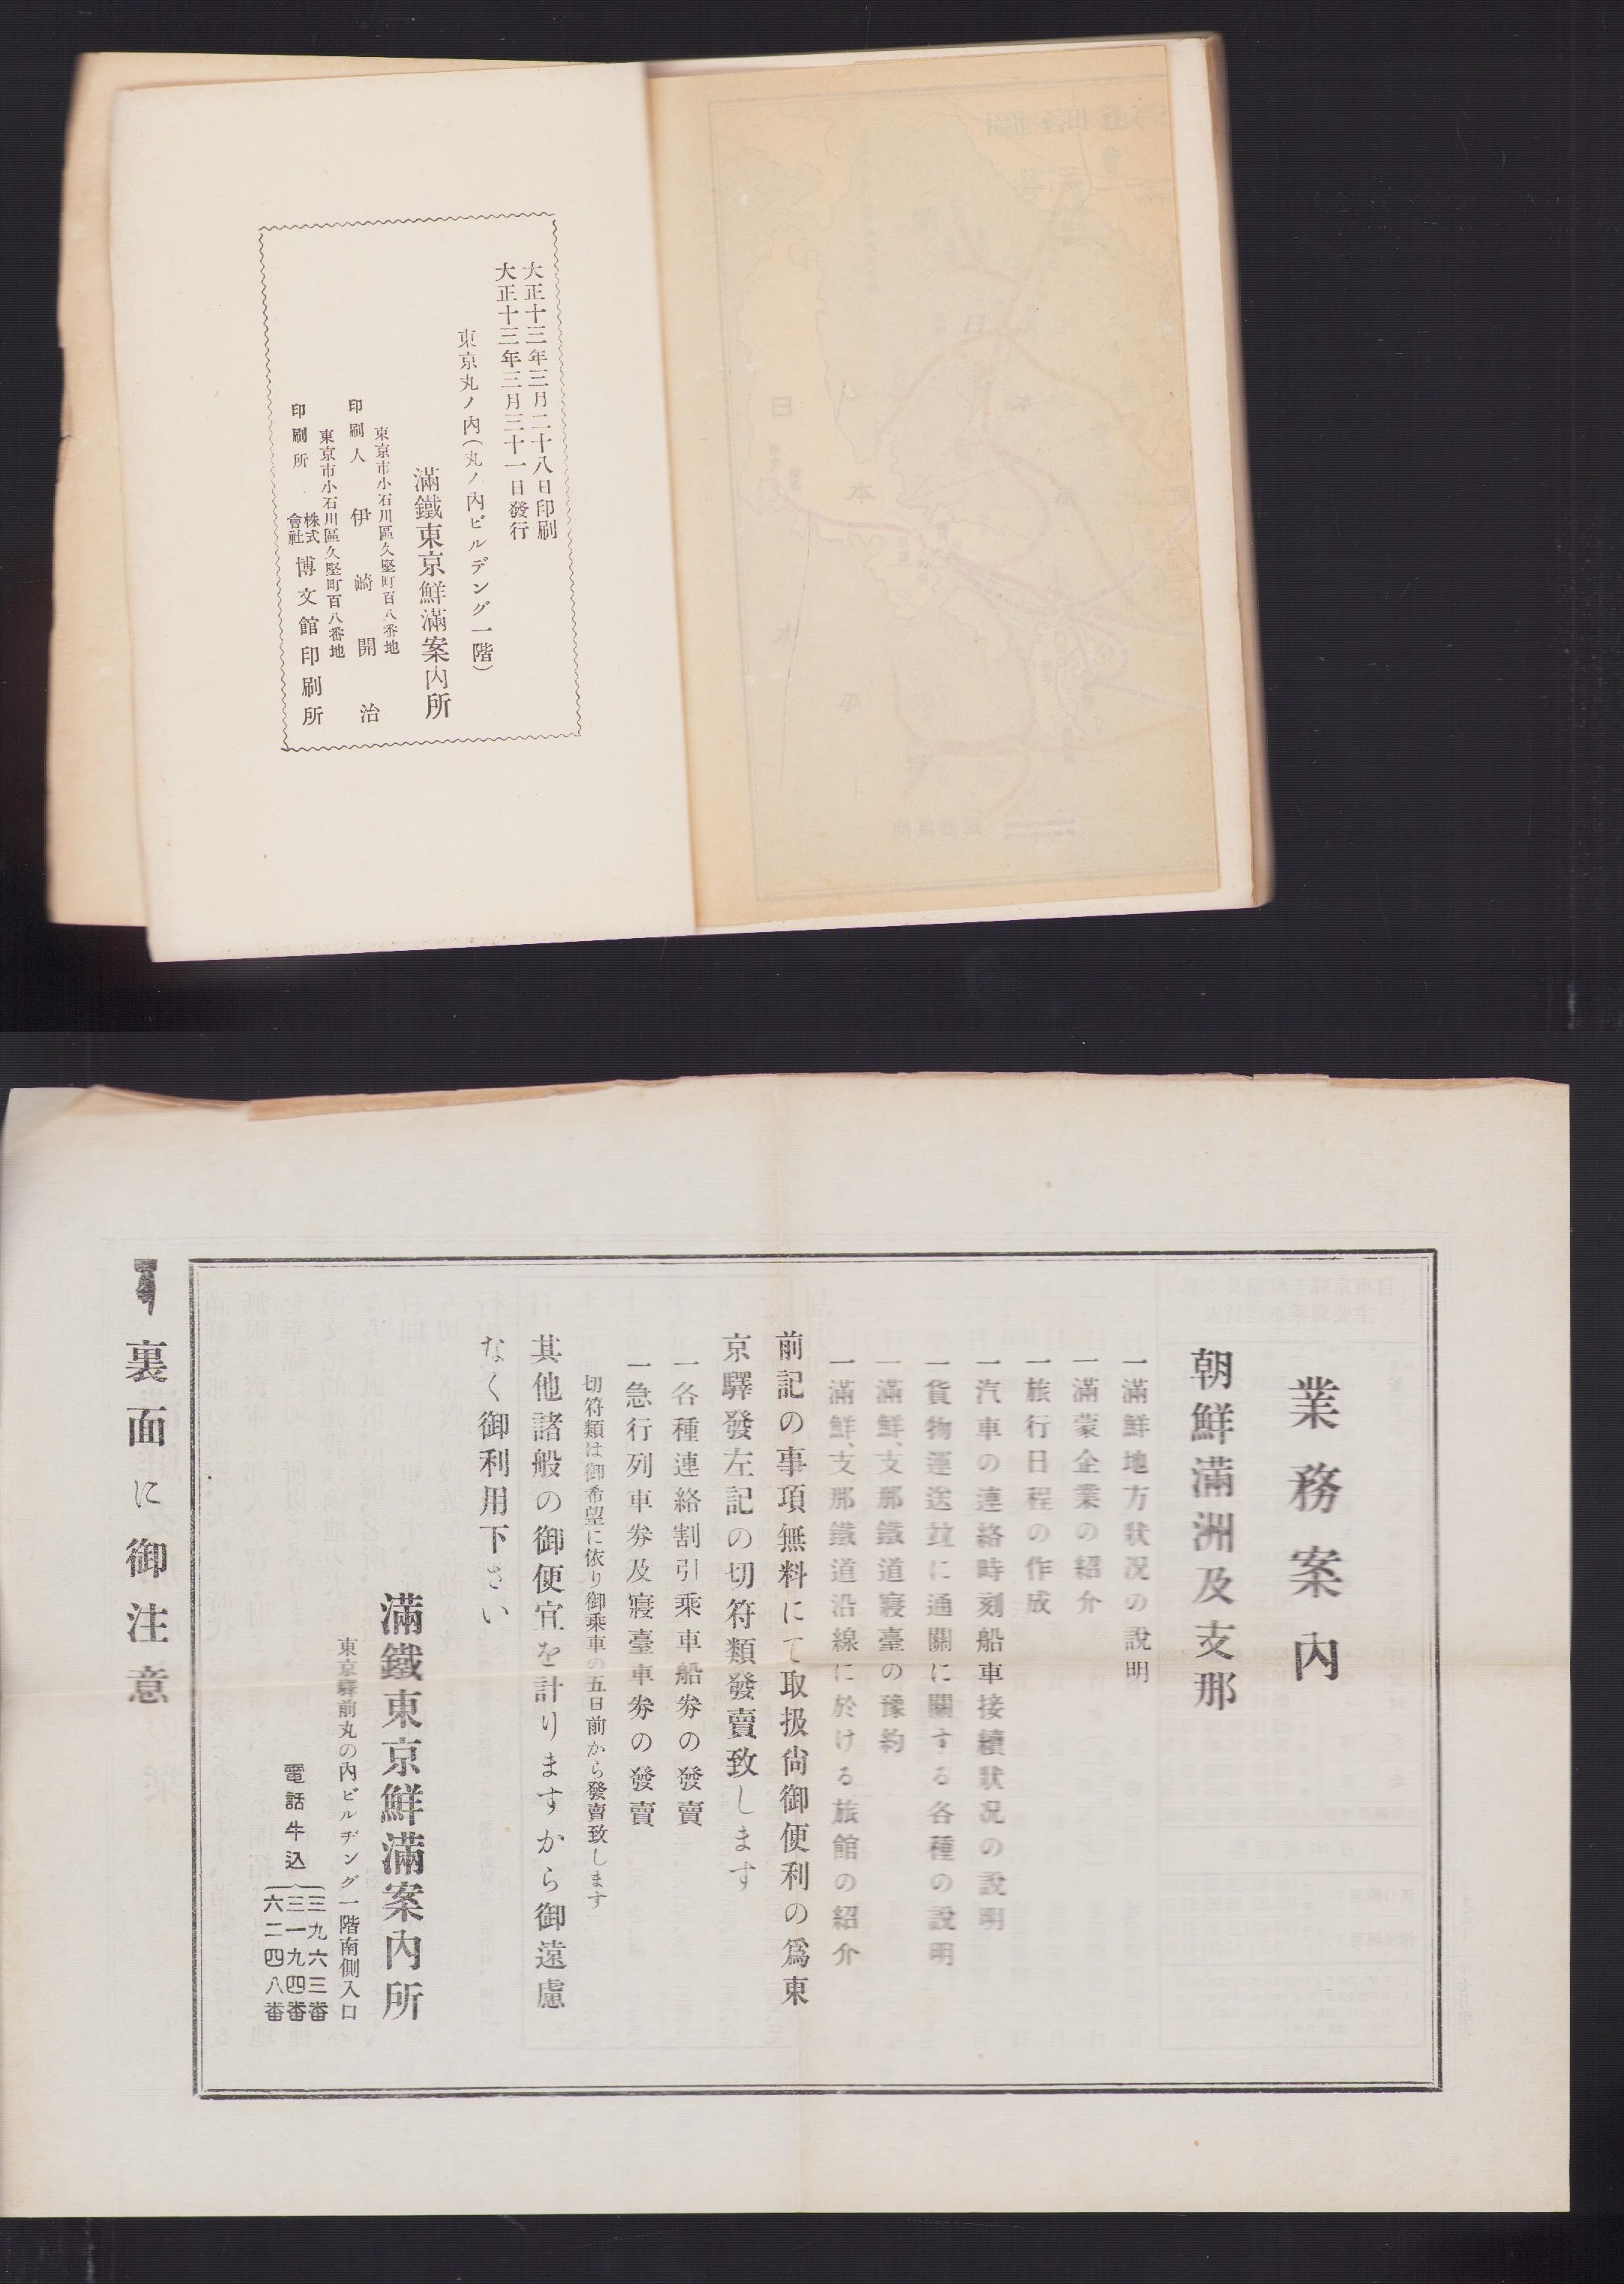 大正十三年三月二十八日印刷
大正十三年三月三十一日發行
東京丸ノ内(丸ノ内ビルデング一階)
滿鐵東京鮮滿案内所
東京市小石川區久堅町百八番地
印刷人 伊崎開治
東京市小石川區久堅町百八番地
印刷所 株式會社 博文館印刷所
業務案内
朝鮮滿洲及支那
一滿鮮地方狀況の説明
一滿蒙企業の紹介
一旅行日程の作成
一汽車の連絡時刻船車接續狀況の説明
一貨物運送竝に通關に關する各種の説明
一滿鮮、支那鐵道寢臺の豫約
一滿鮮、支那鐵道沿線に於ける旅館の紹介
前記の事項無料にて取扱尙御便利の爲東
京驛發左記の切符類發賣致します
一各種連絡割引乘車船券の發賣
一急行列車券及寢臺車券の發賣
切符類は御希望に依り御乘車の五日前から發賣致します
其他諸般の御便宜を計りますから御遠慮
なく御利用下さい
滿鐵東京鮮滿案内所
東京驛前丸の内ビルヂング一階南側入口
電話牛込
三九六三番
三一九四番
六二四八番
裏面に御注意